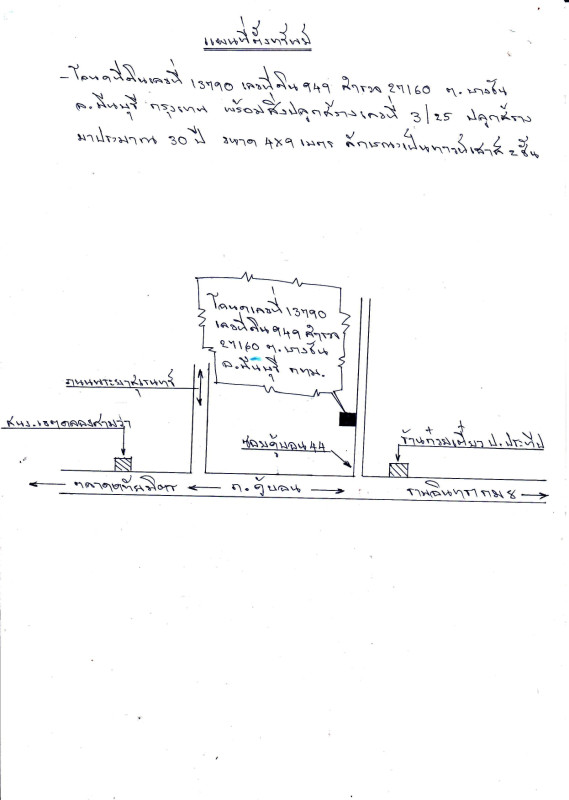 แผนที่ตั้งทรัพย์
-โฉนดที่ดินเลขที่ 13790 เลขที่ดิน 949 สำรวจ 27160 ต.บางชัน
อ.มีนบุรี กรุงเทพ พร้อมสิ่งปลูกสร้างเลขที่ 3/25 ปลูกสร้าง
มาประมาณ 30 ปี ขนาด 4x9 เมตร ลักษณะเป็นทาวน์เฮาส์ 2 ชั้น
โฉนดเลขที่ 13790
เลขที่ดิน 949 สำรวจ
27160 ต.บางชัน
อ.มีนบุรี กทม.
ถนนพระยาสุเรนทร์
สนง.เขตคลองสามวา
ซอยคู้บอน 44
ร้านก๋วยเตี๋ยว ป.ประทีป
ตลาดหทัยมิตร
ถ.คู้บอน
รามอินทรา กม 8